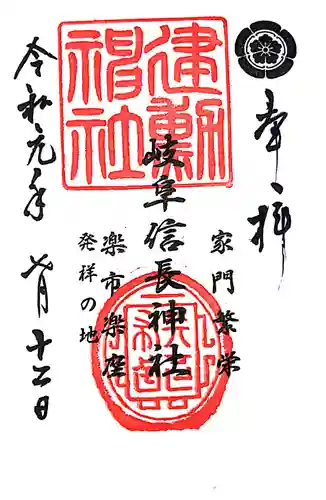 奉拝
家門繁栄
建勲神社
岐阜信長神社
楽市楽座
発祥の地
令和元年 七月十二日